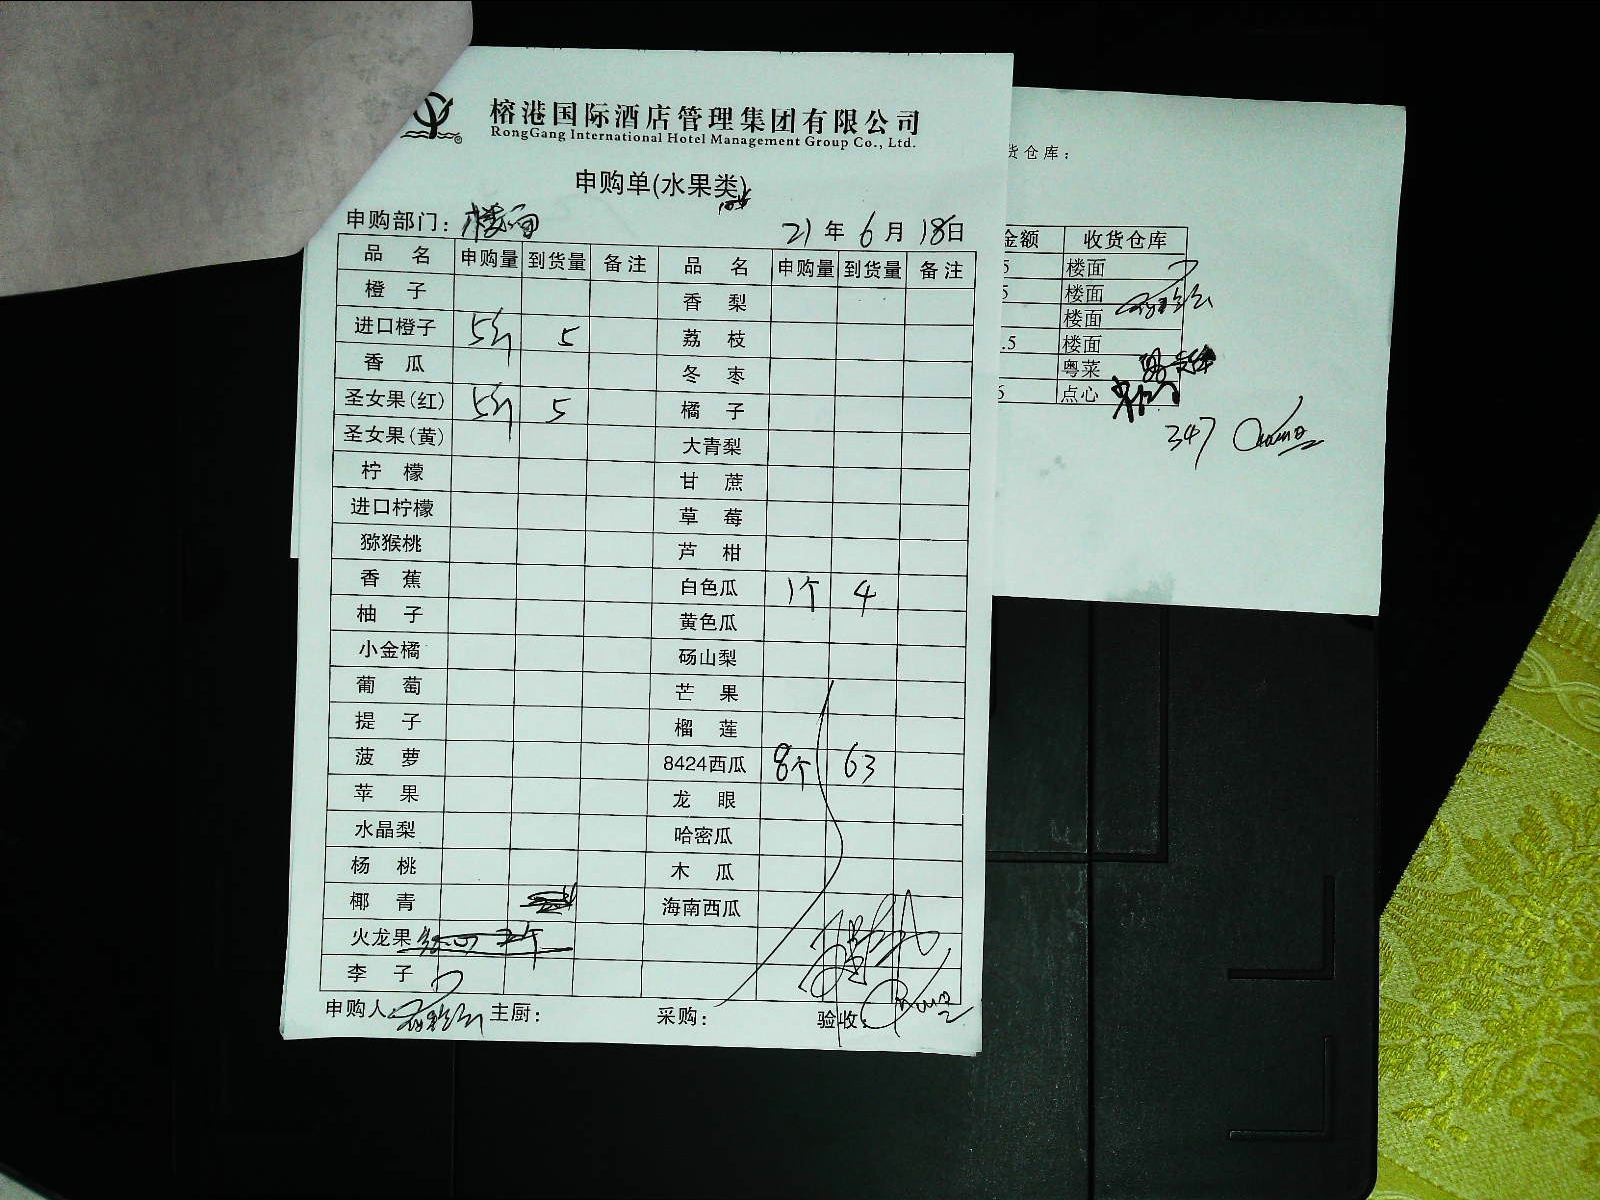 榕港国际酒店管理集团有限公司
RongGang International Hotel Management Group Co., Ltd.
申购单(水果类)
申购部门: 楼面 21 年 6 月 18 日
品 名 申购量 到货量 备注 品 名 申购量 到货量 备注
橙 子 香 梨
进口橙子 5斤 5 荔 枝
香 瓜 冬 枣
圣女果(红) 5斤 5 橘 子
圣女果(黄) 大青梨
柠 檬 甘 蔗
进口柠檬 草 莓
猕猴桃 芦 柑
香 蕉 白色瓜 1个 4
柚 子 黄色瓜
小金橘 砀山梨
葡 萄 芒 果
提 子 榴 莲
菠 萝 8424西瓜 8个 63
苹 果 龙 眼
水晶梨 哈密瓜
杨 桃 木 瓜
椰 青 海南西瓜
火龙果
李 子
申购人: 主厨: 采购: 验收:
货仓库:
金额 收货仓库
5 楼面
5 楼面
楼面
.5 楼面
粤菜
6 点心
347